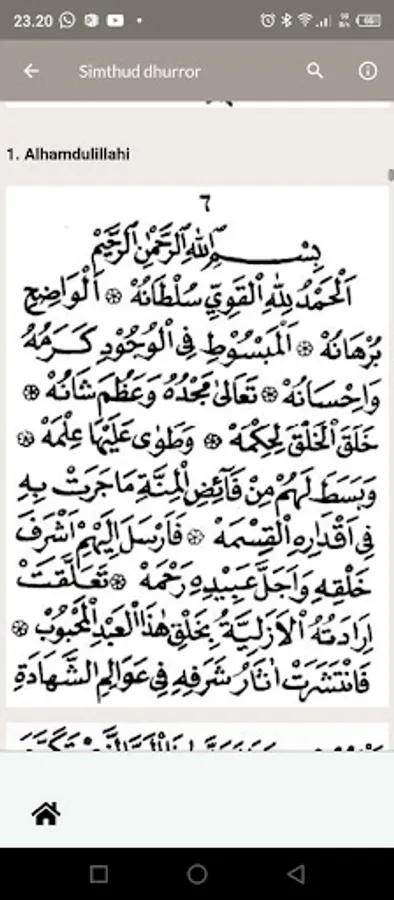 23.20
Simthud dhurror
1. Alhamdulillahi
٦
بِسْمِ اللهِ الرَّحْمٰنِ الرَّحِيْمِ
اَلْحَمْدُ لِلّٰهِ الْقَوِيِّ سُلْطَانُهْ ۞ اَلْوَاضِحِ
بُرْهَانُهْ ۞ اَلْمَبْسُوْطِ فِى الْوُجُوْدِ كَرَمُهُ
وَاِحْسَانُهْ ۞ تَعَالٰى مَجْدُهُ وَعَظُمَ شَانُهْ ۞
خَلَقَ الْخَلْقَ لِحِكْمَهْ ۞ وَطَوٰى عَلَيْهَا عِلْمَهْ ۞
وَبَسَطَ لَهُمْ مِنْ فَآئِضِ الْمِنَّةِ مَاجَرَتْ بِهِ
فِى اَقْدَارِهِ الْقِسْمَهْ ۞ فَاَرْسَلَ اِلَيْهِمْ اَشْرَفَ
خَلْقِهِ وَاَجَلَّ عَبِيْدِهِ رَحْمَهْ ۞ تَعَلَّقَتْ
اِرَادَتُهُ الْاَزَلِيَّةُ بِخَلْقِ هٰذَا الْعَبْدِ الْمَحْبُوْبْ ۞
فَانْتَشَرَتْ اٰثَارُ شَرَفِهِ فِى عَوَالِمِ الشَّهَادَةِ